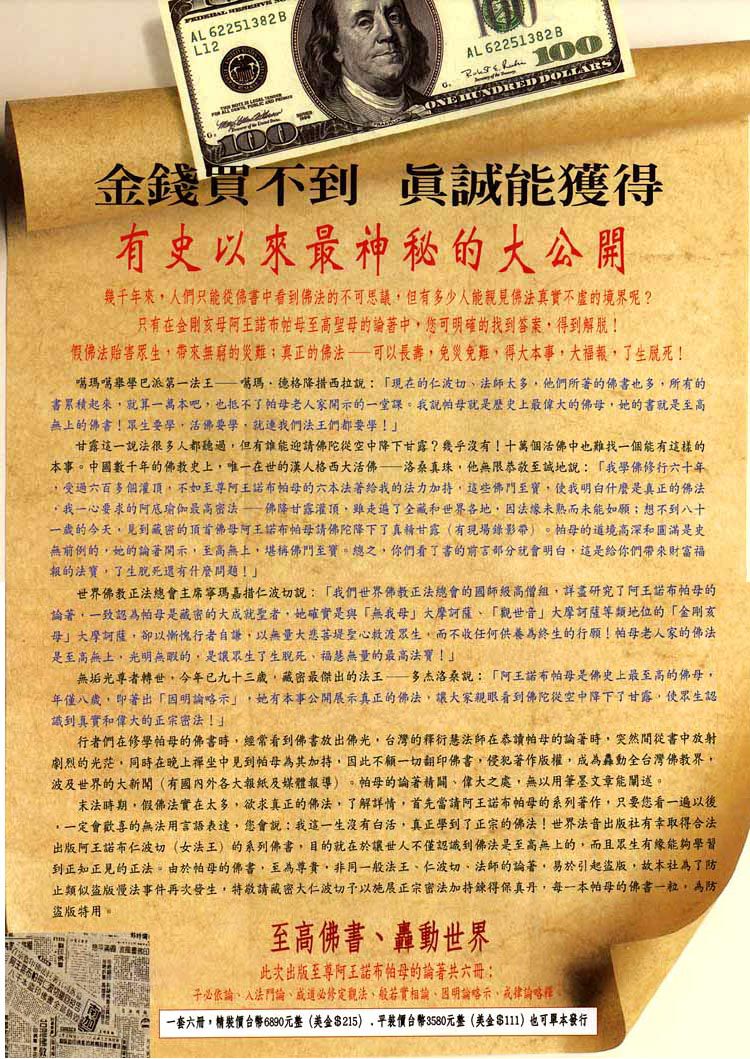 FEDERAL RESERVE NOTE
AL 62251382 B
L12
AL 62251382 B
THIS NOTE IS LEGAL TENDER
FOR ALL DEBTS, PUBLIC AND PRIVATE
SERIES
1996
Secretary of the Treasury
100
ONE HUNDRED DOLLARS
100
金錢買不到 眞誠能獲得
有史以來最神秘的大公開
幾千年來,人們只能從佛書中看到佛法的不可思議,但有多少人能親見佛法真實不虛的境界呢?
只有在金剛亥母阿王諾布帕母至高聖母的論著中,您可明確的找到答案,得到解脫!
假佛法貽害眾生,帶來無窮的災難;真正的佛法——可以長壽,免災免難,得大本事,大福報,了生脫死!
噶瑪噶舉學巴派第一法王——噶瑪.德格降措西拉說:「現在的仁波切、法師太多,他們所著的佛書也多,所有的
書累積起來,就算一萬本吧,也抵不了帕母老人家開示的一堂課。我說帕母就是歷史上最偉大的佛母,她的書就是至高
無上的佛書!眾生要學,活佛要學,就連我們法王們都要學!」
甘露這一說法很多人都聽過,但有誰能迎請佛陀從空中降下甘露?幾乎沒有!十萬個活佛中也難找一個能有這樣的
本事。中國數千年的佛教史上,唯一在世的漢人格西大活佛——洛桑真珠,他無限恭敬至誠地說:「我學佛修行六十年
,受過六百多個灌頂,不如至尊阿王諾布帕母的六本法著給我的法力加持,這些佛門至寶,使我明白什麼是真正的佛法
,我一心要求的阿底瑜伽最高密法——佛降甘露灌頂,雖走遍了全藏和世界各地,因法緣未熟而未能如願;想不到八十
一歲的今天,見到藏密的頂首佛母阿王諾布帕母請佛陀降下了真精甘露(有現場錄影帶)。帕母的道境高深和圓滿是史
無前例的,她的論著開示,至高無上,堪稱佛門至寶。總之,你們看了書的前言部分就會明白,這是給你們帶來財富福
報的法寶,了生脫死還有什麼問題!」
世界佛教正法總會主席寧瑪嘉措仁波切說:「我們世界佛教正法總會的國師級高僧組,詳盡研究了阿王諾布帕母的
論著,一致認為帕母是藏密的大成就聖者,她確實是與「無我母」大摩訶薩、「觀世音」大摩訶薩等類地位的「金剛亥
母」大摩訶薩,卻以慚愧行者自謙,以無量大悲菩堤聖心救渡眾生,而不收任何供養為終生的行願!帕母老人家的佛法
是至高無上,光明無暇的,是讓眾生了生脫死、福慧無量的最高法寶!」
無垢光尊者轉世,今年已九十三歲,藏密最傑出的法王——多杰洛桑說:「阿王諾布帕母是佛史上最至高的佛母,
年僅八歲,即著出「因明論略示」,她有本事公開展示真正的佛法,讓大家親眼看到佛陀從空中降下了甘露,使眾生認
識到真實和偉大的正宗密法!」
行者們在修學帕母的佛書時,經常看到佛書放出佛光,台灣的釋衍慧法師在恭讀帕母的論著時,突然間從書中放射
劇烈的光茫,同時在晚上禪坐中見到帕母為其加持,因此不顧一切翻印佛書,侵犯著作版權,成為轟動全台灣佛教界,
波及世界的大新聞(有國內外各大報紙及媒體報導)。帕母的論著精闢、偉大之處,無以用筆墨文章能闡述。
末法時期,假佛法實在太多,欲求真正的佛法,了解詳情,首先當請阿王諾布帕母的系列著作,只要您看一遍以後
,一定會歡喜的無法用言語表達,您會說:我這一生沒有白活,真正學到了正宗的佛法!世界法音出版社有幸取得合法
出版阿王諾布仁波切(女法王)的系列佛書,目的就在於讓世人不僅認識到佛法是至高無上的,而且眾生有緣能夠學習
到正知正見的正法。由於帕母的佛書,至為尊貴,非同一般法王、仁波切、法師的論著,易於引起盜版,故本社為了防
止類似盜版慢法事件再次發生,將敬請藏密大仁波切予以施展正宗密法加持鍊得保真丹,每一本帕母的佛書一粒,為防
盜版特用。
至高佛書、轟動世界
此次出版至尊阿王諾布帕母的論著共六冊:
子必依論、入法門論、成道必修定觀法、般若實相論、因明論略示、戒律論略釋。
一套六冊,精裝價台幣6890元整(美金$215).平裝價台幣3580元整(美金$111)也可單本發行